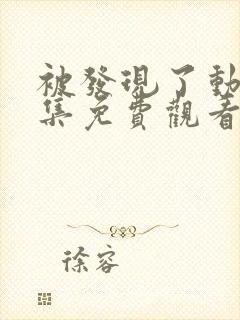 被發現了動
集免費觀看
徐容